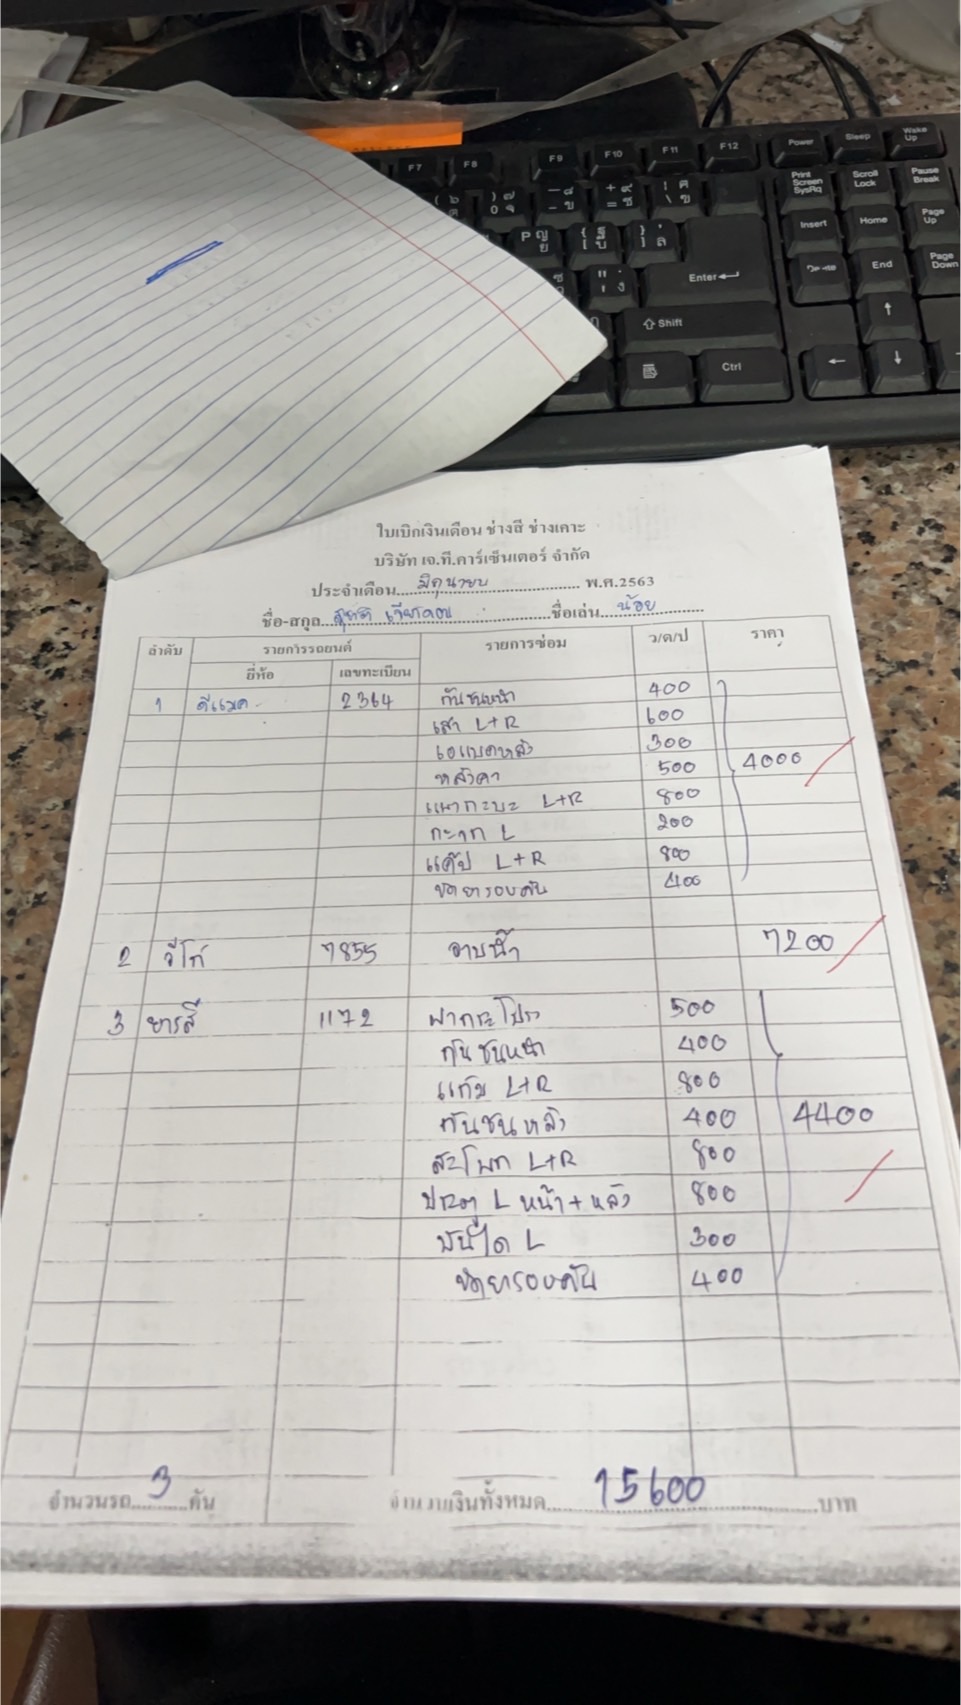 F7 F8 F9 F10 F11 F12 Power Sleep Wake Up
Print Screen SysRq Scroll Lock Pause Break
Insert Home Page Up
Enter End Page Down
Shift
Ctrl
ใบเบิกเงินเดือน ช่างสี ช่างเคาะ
บริษัท เจ.ที.คาร์เซ็นเตอร์ จำกัด
ประจำเดือน มิถุนายน พ.ศ.2563
ชื่อ-สกุล ชื่อเล่น น้อย
ลำดับ รายการรถยนต์ รายการซ่อม ว/ด/ป ราคา
ยี่ห้อ เลขทะเบียน
1 ดีแมค 2364 กันชนหน้า 400
เสา L+R 600
300
หลังคา 500 4000
L+R 800
กะจก L 200
แค๊ป L+R 800
ขัดยารอบคัน 400
2 วีโก่ 7855 อาบน้ำ 7200
3 ยารีส 1172 ฝากระโปรง 500
กันชนหน้า 400
แก้ม L+R 800
กันชนหลัง 400 4400
สะโพก L+R 800
ประตู L หน้า+หลัง 800
บันได L 300
ขัดยารอบคัน 400
จำนวนรถ 3 คัน จำนวนเงินทั้งหมด 15600 บาท